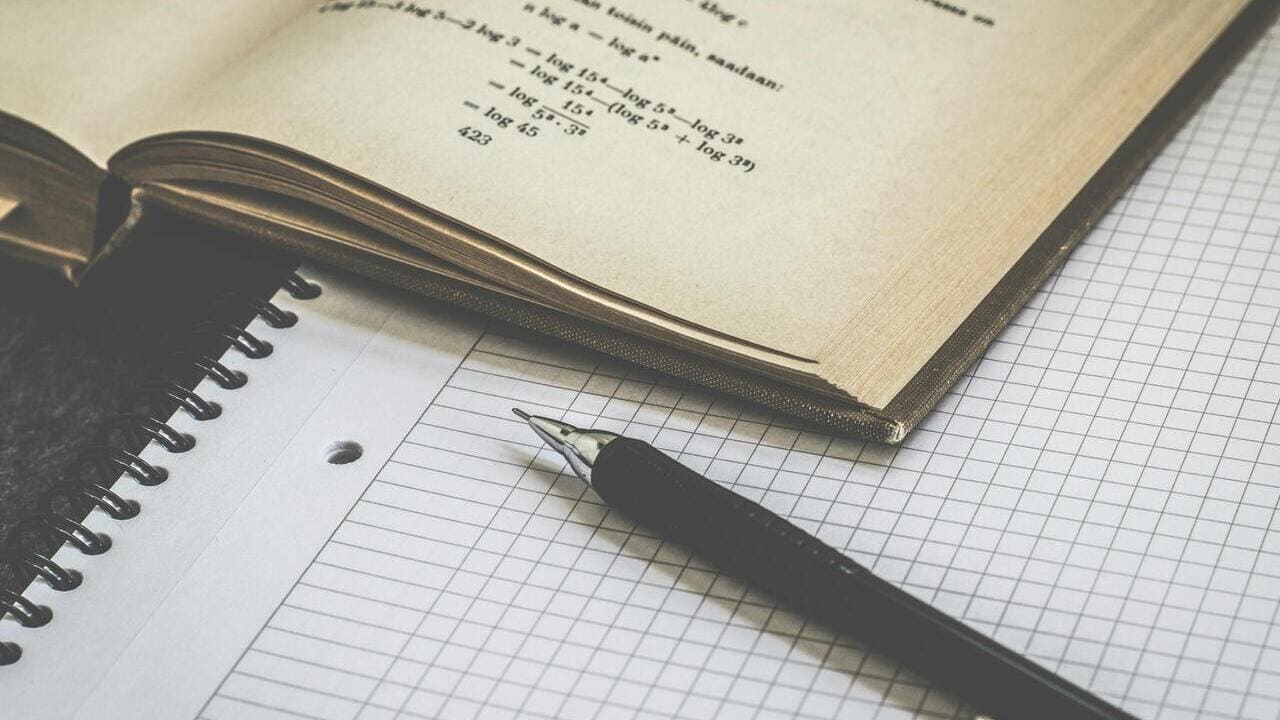 4log c
toisin päin, saadaan:
n log a = log aⁿ
log 15—3 log 5—2 log 3 = log 15⁴—log 5³—log 3²
= log 15⁴—(log 5³ + log 3²)
= log 15⁴ / 5³ · 3²
= log 45
423